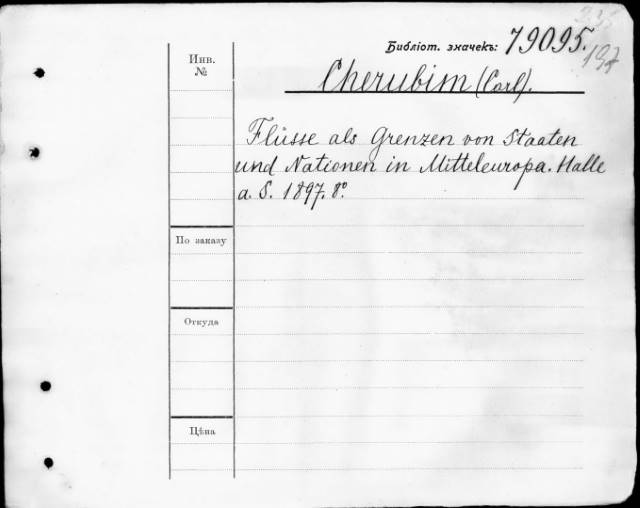 Библіот. значекъ: 79095.
197
Инв.
№
Cherubim (Carl).
Flüsse als Grenzen von Staaten
und Nationen in Mitteleuropa. Halle
a. S. 1897. 8º.
По заказу
Откуда
Цѣна